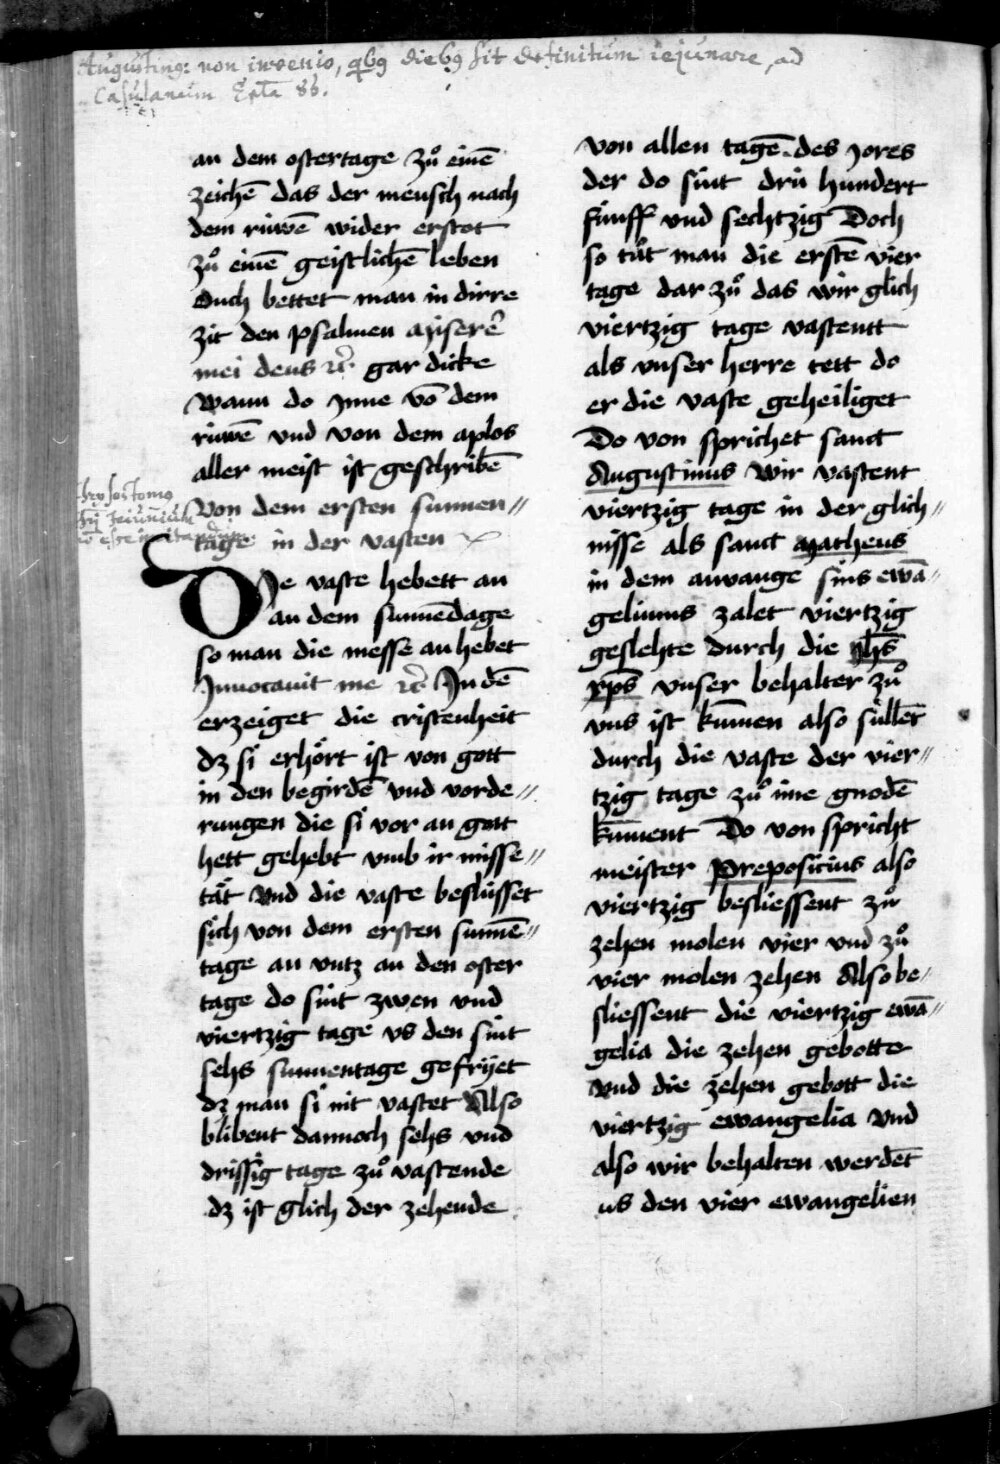 Augustinꝰ: non invenio, qͥbꝰ diebꝰ sit definitum iejunare, ad
Casulanum Epĺa 86.
an dem ostertage zuͦ einē
zeichē das der mensch nach
dem ruwē wider erstot
zuͦ einē geistlichē leben
Ouch bettet man in dirre
zit den psalmen Miserē
mei deus ⁊cͣ gar dicke
Wann do Jnne vō dem
ruwē vnd von dem aplos
aller meist ist geschribē
Chrysostomꝰ
Von dem ersten sunnen〃
tage in der vasten
DJe vaste hebett an
an dem sunnēdage
so man die messe an hebet
Jnuocauit me ⁊cͣ Jn dē
erzeiget die cristenheit
dz si erhoͤrt ist von gott
in den begirdē vnd vorde〃
rungen die si vor an gott
hett gehebt vmb ir misse〃
taͤt Vnd die vaste beslusset
sich von dem ersten sunnē〃
tage an vntz an den oster
tage do sint zwen vnd
viertzig tage vs den sint
sehs sunnentage gefrijet
dz man si nit vastet Also
blibent dannoch sehs vnd
drissig tage zuͦ vastende
dz ist glich der zehende
von allen tagē des Jores
der do sint drü hundert
fünff vnd sechtzig Doch
so tuͦt man die erstē vier
tage dar zuͦ das wir glich
viertzig tage vastentt
als vnser herre tett do
er die vaste geheiliget
Do von sprichet sanct
Augustinus Wir vastent
viertzig tage in der glich〃
nisse als sanct Matheus
in dem anvange sins ewā〃
geliums zalet viertzig
geslehte durch die jh̄s
xp̄s vnser behalter zuͦ
vns ist kūmen also süllēt
durch die vaste der vier〃
tzig tage zuͦ ime gnodē
kūment Do von spricht
meister Prepositius also
viertzig besliessent zuͦ
zehen molen vier vnd zuͦ
vier molen zehen Also be〃
sliessent die viertzig ewā〃
gelia die zehen gebotte
Vnd die zehen gebott die
viertzig ewangelia Vnd
also wir behalten werdēt
us den vier ewangelien